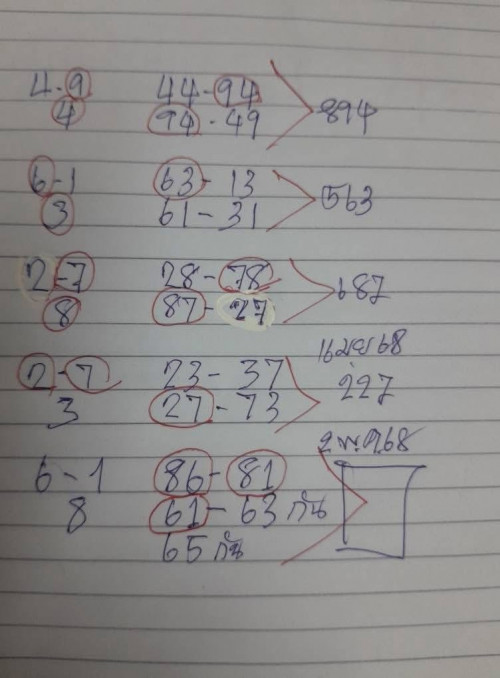 4-9 44-94
4 94-49 894
6-1 63-13
3 61-31 563
2-7 28-78
8 87-27 687
2-7 23-37 16 เมย 68
3 27-73 227
6-1 86-81 2 พ.ค.68
8 61-63 กัน
65 กัน